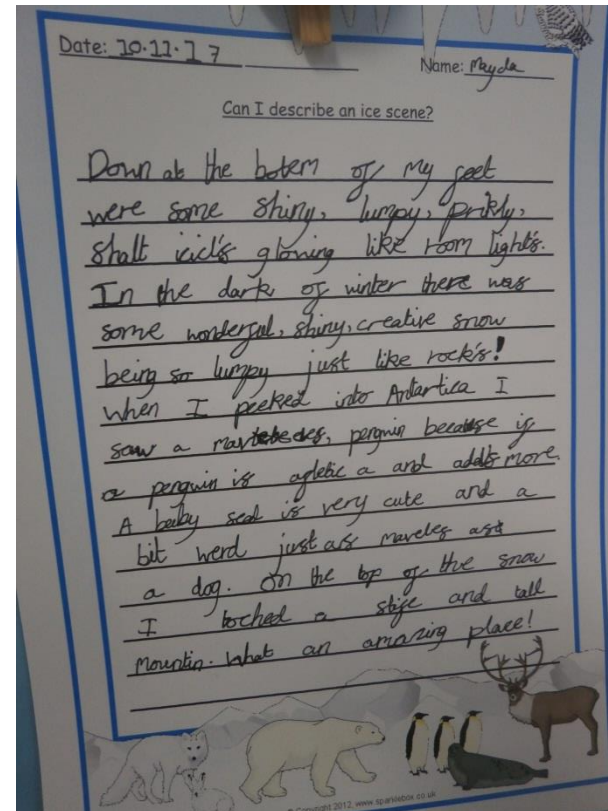 Date: 10.11.17
Name: Mayda
Can I describe an ice scene?
Down at the botem of my feet
were some shiny, lumpy, prikly,
shalt icicl's glowing like room light's.
In the dark of winter there was
some wonderful, shiny, creative snow
being so lumpy just like rock's!
when I peeked into Antartica I
saw a penguin because if
a penguin is agletic a and adds more.
A baby seal is very cute and a
bit werd just as maveles as
a dog. On the top of the snow
I toched a stife and tall
mountin. What an amazing place!
Copyright 2012, www.sparklebox.co.uk